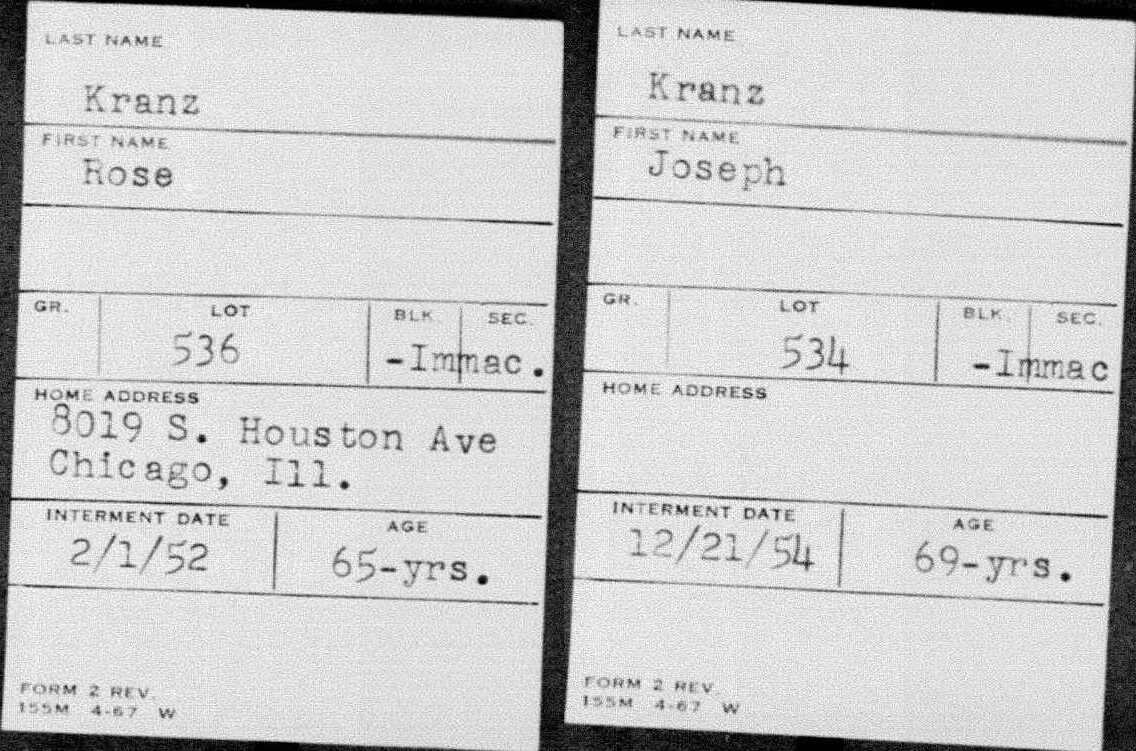 LAST NAME
Kranz
FIRST NAME
Rose
GR. LOT BLK. SEC.
536 -Immac.
HOME ADDRESS
8019 S. Houston Ave
Chicago, Ill.
INTERMENT DATE AGE
2/1/52 65-yrs.
FORM 2 REV.
155M 4-67 W
LAST NAME
Kranz
FIRST NAME
Joseph
GR. LOT BLK. SEC.
534 -Immac
HOME ADDRESS
INTERMENT DATE AGE
12/21/54 69-yrs.
FORM 2 REV.
155M 4-67 W